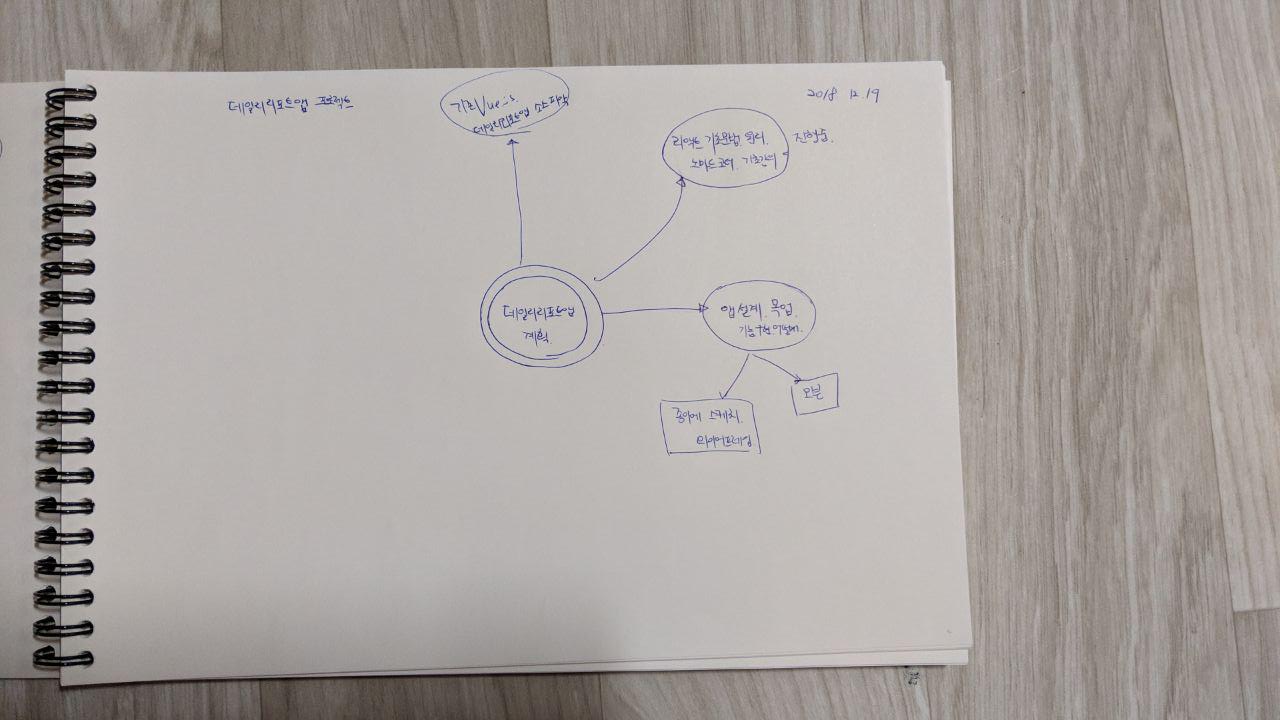 데일리리포트앱 프로젝트
2018 12. 19
기존 Vue.js.
데일리리포트앱 소스파악
리액트 기초문법 익히기.
노마드코더. 기초강의
진행중.
데일리리포트앱
계획
앱설계. 목업.
기능구현 어떻게.
종이에 스케치.
와이어프레임
오븐